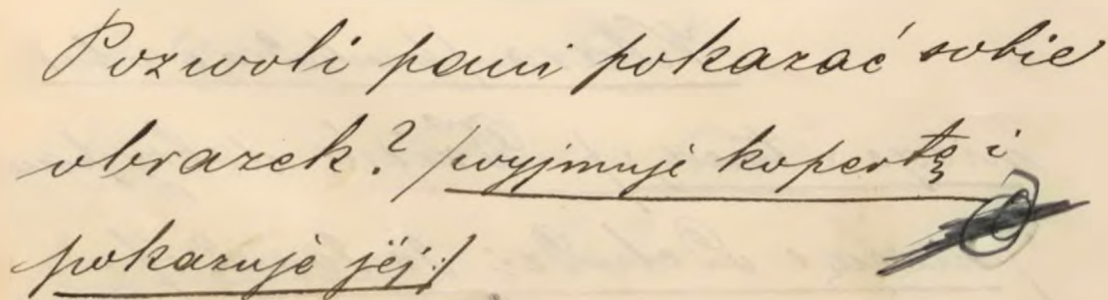 Pozwoli pani pokazać sobie
obrazek? /wyjmuje kopertę i
pokazuje jéj:/